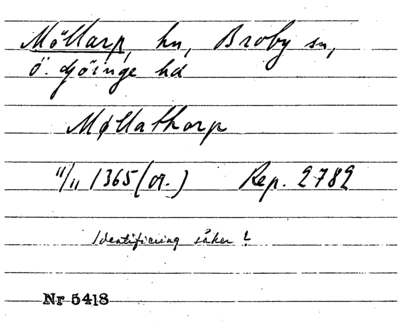 Möllarp, hn, Broby sn,
Ö. Göinge hd
Møllathorp
11/11 1365 (or.) Rep. 2782
Identifiering säker?
Nr 5418